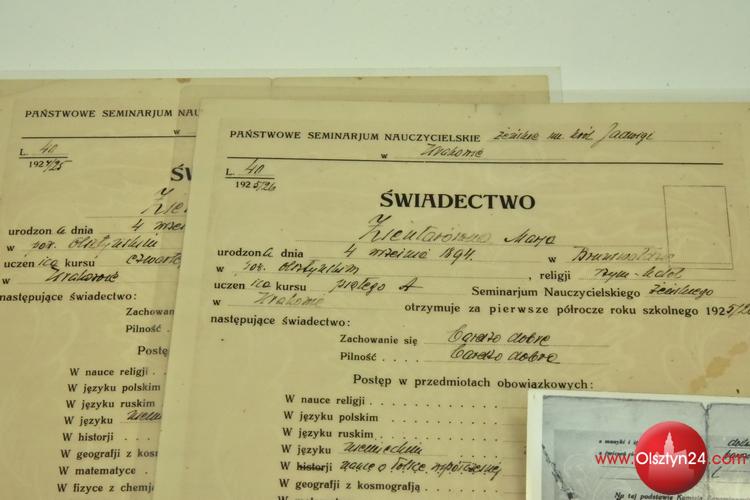 PAŃSTWOWE SEMINARJUM NAU
w
L. 40
1924/25
urodzona dnia 4 wrze
w pow. olsztyńskim
uczenica kursu czwarte
w Krakowie
następujące świadectwo:
Zachowanie
Pilność
Postę
W nauce religji
W języku polskim
W języku ruskim
W języku niem
W historji
W geografji z kos
W matematyce
W fizyce z chemj
PAŃSTWOWE SEMINARJUM NAUCZYCIELSKIE żeńskie im. król. Jadwigi
w Krakowie
L. 40
1925/26
ŚWIADECTWO
Zientarówna Marja
urodzona dnia 4 września 1894. w Brunswałdzie
w pow. olsztyńskim, religji rzym-katol
uczenica kursu piątego A Seminarjum Nauczycielskiego żeńskiego
w Krakowie otrzymuje za pierwsze półrocze roku szkolnego 1925/26
następujące świadectwo:
Zachowanie się bardzo dobre
Pilność bardzo dobra
Postęp w przedmiotach obowiązkowych:
W nauce religji
W języku polskim
W języku ruskim
W języku niemieckim
W historji nauce o Polsce współczesnej
W geografji z kosmografją
www.Olsztyn24.com
Na tej podstawie Komisja